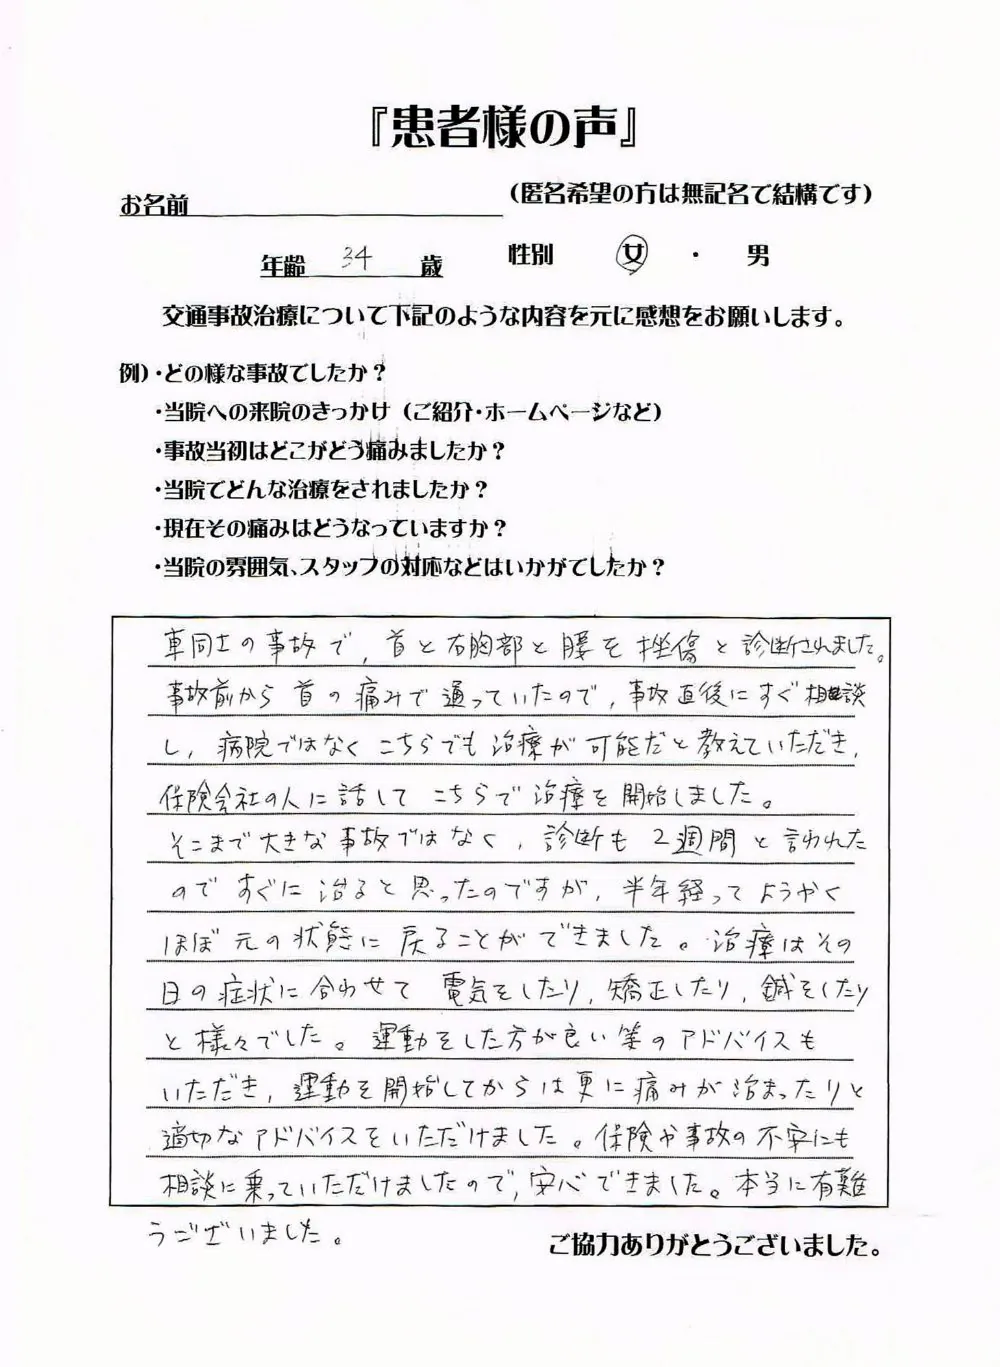 『患者様の声』
お名前 (匿名希望の方は無記名で結構です)
年齢 34 歳 性別 女 ・ 男
交通事故治療について下記のような内容を元に感想をお願いします。
例)・どの様な事故でしたか?
・当院への来院のきっかけ (ご紹介・ホームページなど)
・事故当初はどこがどう痛みましたか?
・当院でどんな治療をされましたか?
・現在その痛みはどうなっていますか?
・当院の雰囲気、スタッフの対応などはいかがでしたか?
車同士の事故で,首と右胸部と腰を挫傷と診断されました。
事故前から首の痛みで通っていたので,事故直後にすぐ相談
し,病院ではなくこちらでも治療が可能だと教えていただき,
保険会社の人に話してこちらで治療を開始しました。
そこまで大きな事故ではなく,診断も2週間と言われた
のですぐに治ると思ったのですが,半年経ってようやく
ほぼ元の状態に戻ることができました。治療はその
日の症状に合わせて電気をしたり,矯正したり,鍼をしたり
と様々でした。運動をした方が良い等のアドバイスも
いただき,運動を開始してからは更に痛みが治まったりと
適切なアドバイスをいただけました。保険や事故の不安にも
相談に乗っていただけましたので,安心できました。本当に有難
うございました。
ご協力ありがとうございました。